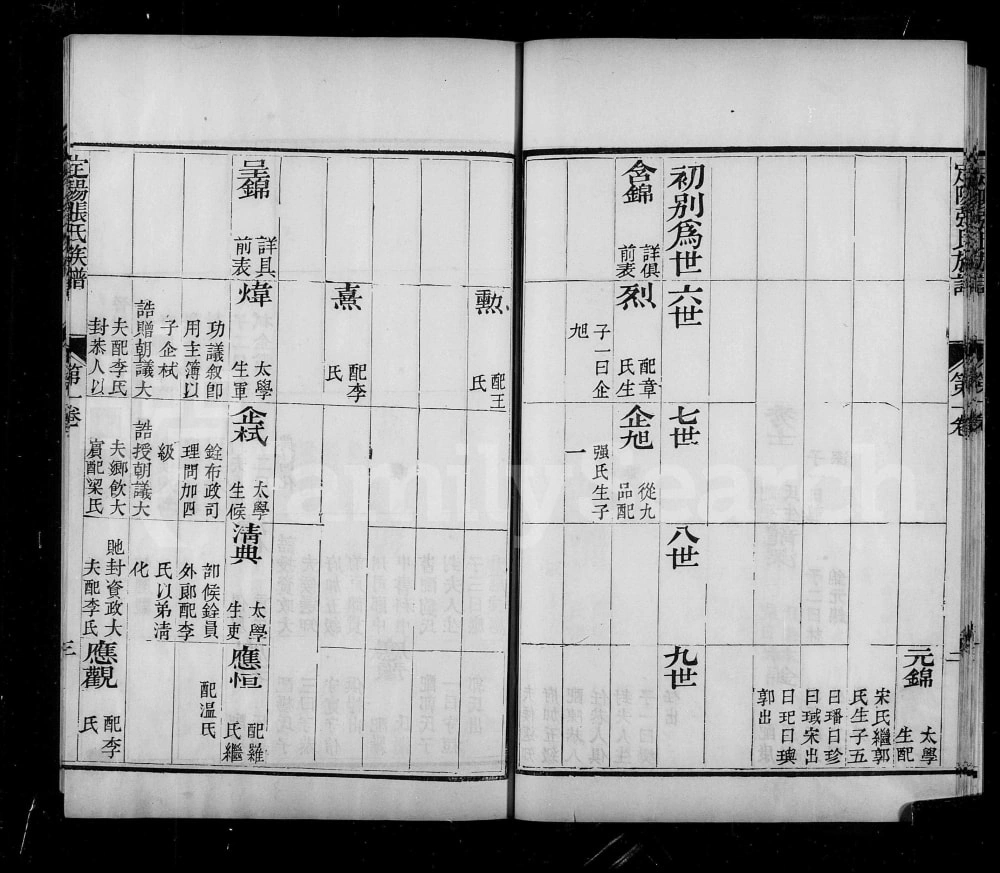 定陽張氏族譜
第一卷
二
元錦
太學
生配
宋氏繼郭
氏生子五
曰璠曰珍
曰珹宋出
曰玘曰璵
郭出
初别為世
六世
七世
八世
九世
含錦
詳俱
前表
烈
配章
氏生
子一曰企
旭
企旭
從九
品配
張氏生子
一
勲
配王
氏
熹
配李
氏
呈錦
詳具
前表
煒
太學
生軍
功議叙即
用主簿以
子企栻
誥贈朝議大
夫配李氏
封恭人以
企栻
太學
生候
銓布政司
理問加四
級
誥授朝議大
夫鄉飲大
賓配梁氏
清典
太學
生吏
部候銓員
外郎配李
氏以弟清
化
貤封資政大
夫配李氏
應恒
配羅
氏繼
配温氏
應觀
配李
氏
定陽張氏族譜
第一卷
三